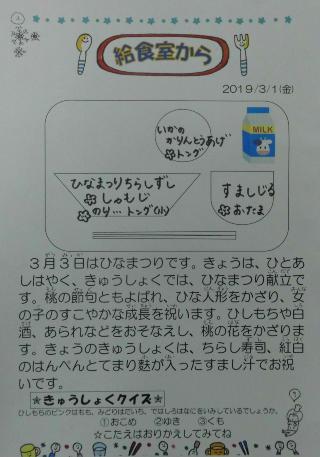 給食室から
2019/3/1(金)
いかの
かりんとうあげ
トング
MILK
ひなまつりちらしずし
しゃもじ
のり…トング(小)
すましじる
おたま
3月3日はひなまつりです。きょうは、ひとあ
しはやく、きゅうしょくでは、ひなまつり献立で
す。桃の節句ともよばれ、ひな人形をかざり、女
の子のすこやかな成長を祝います。ひしもちや白
酒、あられなどをおそなえし、桃の花をかざりま
す。きょうのきゅうしょくは、ちらし寿司、紅白
のはんぺんとてまり麩が入ったすまし汁でお祝
いです。
★きゅうしょくクイズ★
ひしもちのピンクはもも、みどりはだいち、ではしろはなにをいみしているでしょうか。
①おこめ ②ゆき ③くも
☆こたえはおりかえしてみてね